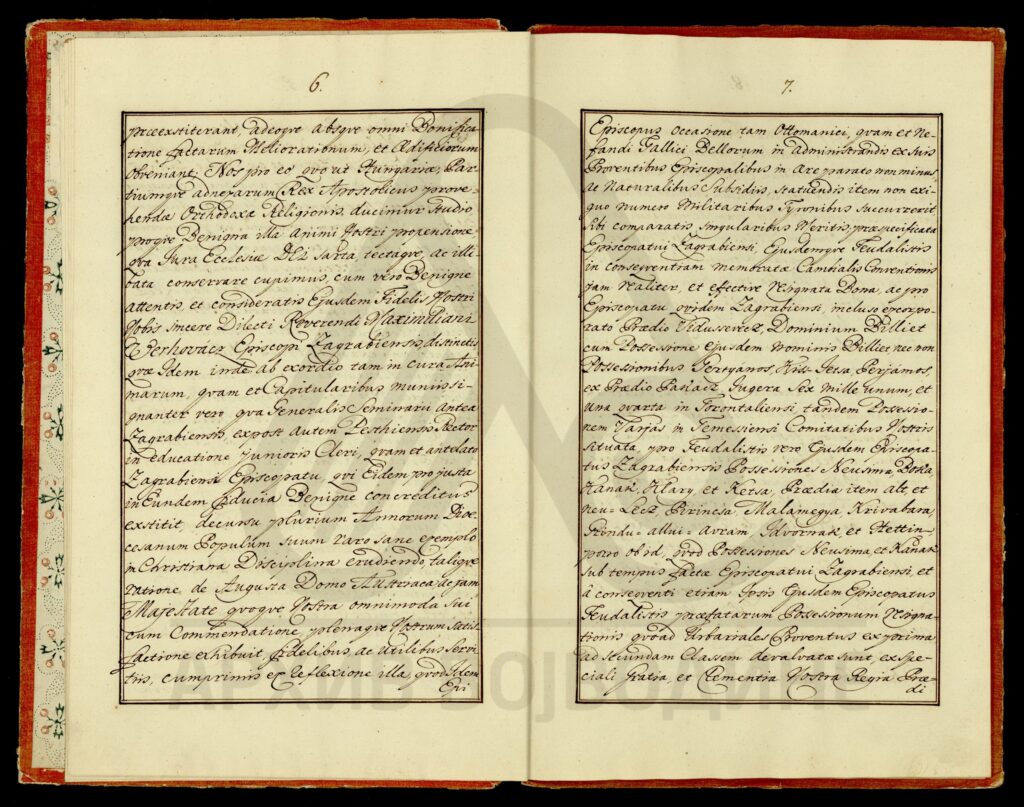 6.
præexstiterant, adeoqve absqve omni Bonifica
tione factarum Meliorationum, et Ædificiorum
obveniant, Nos pro eo qvo ut Hungariæ, Par
tiumqve adnexarum Rex Apostolicus prove-
hendæ Orthodoxæ Religionis ducimur studio
proqve Benigna illa Animi Nostri propensione
qva Jura Ecclesiæ DEI sarta, tectaqve, ac ille-
bata conservare cupimus cum vero Benigne
attentis, et consideratis Ejusdem Fidelis Nostri
Nobis sincere Dilecti Reverendi Maximiliani
Verhovácz Episcopi Zagrabiensis, distinctis
qvæ Idem inde ab exordio tam in Cura Ani
marum, qvam et Capitularibus muniis si-
gnanter vero qva Generalis Seminarii Antea
Zagrabiensis, expost autem Pesthiensis Rector
in educatione junioris Cleri, qvam et antelato
Zagrabiensi Episcopatu, qvi Eidem pro justa
in Eundem fiducia Benigne concreditus
exstitit, decursu plurium Annorum Dioe-
cesanum Populum suum raro sane exemplo
in Christiana Disciplina erudiendo taliqve
ratione de Augusta Domo Austriaca, de jam
Majestate qvoqve Nostra omnimoda sui
cum Commendatione, plenaqve Nostrum satis-
factione exhibuit, fidelibus ac utilibus Servi
tiis, cumprimis ex reflexione illa, qvod Idem
Epi
7.
Episcopus occasione tam Ottomanici, qvam et Ne-
fandi Gallici Bellorum in administrandis ex suis
Proventibus Episcopalibus in Ære parato non minus
ac Naturalibus Subsidiis, statuendis item non exi-
guo numero Militaribus Tyronibus succurrerit
sibi comparatis singularibus Meritis, præspecificata
Episcopatui Zagrabiensi, Ejusdemqve Feudalistis
in conseqventiam memoratæ Cambialis Conventionis
jam realiter, et effective resignata Bona, ac pro
Episcopatu qvidem Zagrabiensi, incluso excorpo-
rato Prædio Dominium Billiet
cum Possessione Ejusdem Nominis Billiet, nec non
Possessionibus Kiss-Jetsa, Perjamos,
ex Prædio Jugera Sex Mille unum, et
una qvarta in Torontaliensi, tandem Possessio-
nem Varjás in Temessiensi Comitatibus Nostris
situata, pro Feudalistis vero Ejusdem Episcopa-
tus Zagrabiensis Possessiones Neusina, Botka
Kanak, Klary, et Ketsa, Prædia item alt, et
neu-Lecz, Perinesa, Malamegya, Krivabara,
Avram, Idvornak, et Hettin,
porro ob id, qvod Possessiones Neusina, et Kanak
sub tempus factæ Episcopatui Zagrabiensi, et
a conseqventi etiam Ipsis Ejusdem Episcopatus
Feudalistis præfatarum Possessionum Resigna-
tionis qvoad Urbariales Proventus ex prima
ad secundam Classem devalvatæ sunt, ex Spe-
ciali Gratia, et Clementia Nostra Regia Præ-
di
АРХИВ ВОЈВОДИНЕ